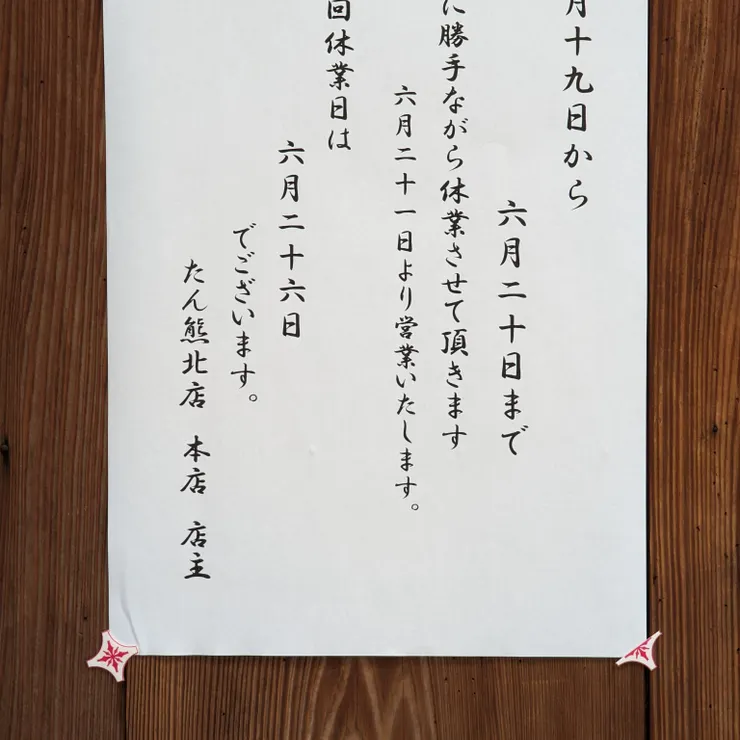 月十九日から
六月二十日まで
に勝手ながら休業させて頂きます
六月二十一日より営業いたします。
回休業日は
六月二十六日
でございます。
たん熊北店 本店 店主